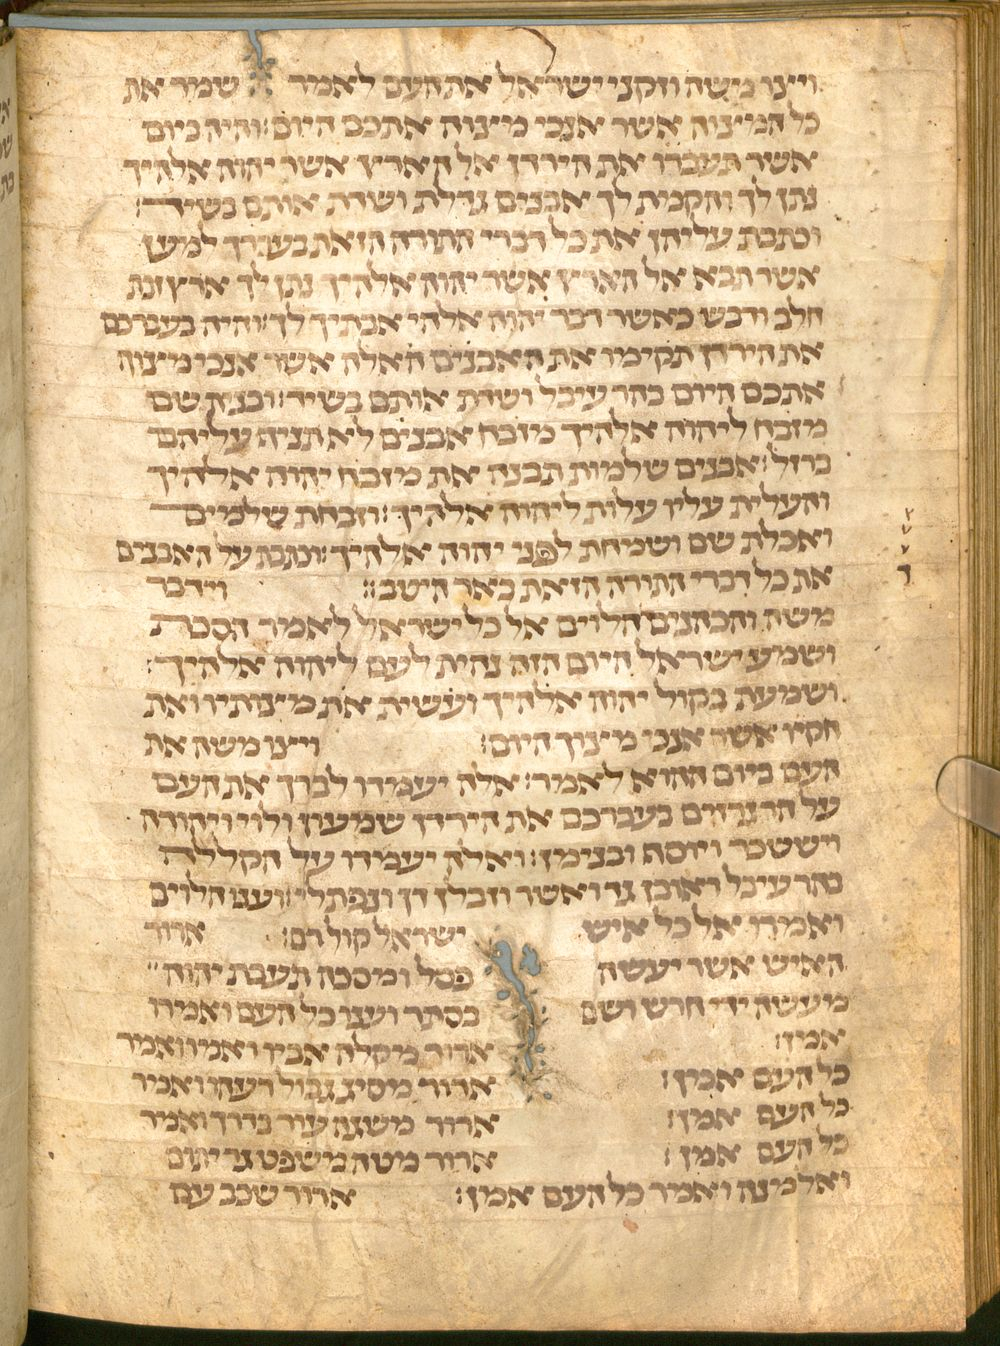 ויצו משה וזקני ישראל את העם לאמר שמר את
כל המצוה אשר אנכי מצוה אתכם היום׃ והיה ביום
אשר תעברו את הירדן אל הארץ אשר יהוה אלהיך
נתן לך והקמת לך אבנים גדלת ושדת אותם בשיד׃
וכתבת עליהן את כל דברי התורה הזאת בעברך למען
אשר תבא אל הארץ אשר יהוה אלהיך נתן לך ארץ זבת
חלב ודבש כאשר דבר יהוה אלהי אבתיך לך׃ והיה בעברכם
את הירדן תקימו את האבנים האלה אשר אנכי מצוה
אתכם היום בהר עיבל ושדת אותם בשיד׃ ובנית שם
מזבח ליהוה אלהיך מזבח אבנים לא תניף עליהם
ברזל׃ אבנים שלמות תבנה את מזבח יהוה אלהיך
והעלית עליו עלות ליהוה אלהיך׃ וזבחת שלמים
ואכלת שם ושמחת לפני יהוה אלהיך׃ וכתבת על האבנים
את כל דברי התורה הזאת באר היטב׃ וידבר
משה והכהנים הלוים אל כל ישראל לאמר הסכת
ושמע ישראל היום הזה נהיית לעם ליהוה אלהיך׃
ושמעת בקול יהוה אלהיך ועשית את מצותיו ואת
חקיו אשר אנכי מצוך היום׃ ויצו משה את
העם ביום ההוא לאמר׃ אלה יעמדו לברך את העם
על הר גרזים בעברכם את הירדן שמעון ולוי ויהודה
וישטכר ויוסף ובנימן׃ ואלה יעמדו על הקללה
בהר עיבל ראובן גד ואשר וזבלן דן ונפתלי׃ וענו הלוים
ואמרו אל כל איש ישראל קול רם׃ ארור
האיש אשר יעשה פסל ומסכה תועבת יהוה
מעשה ידי חרש ושם בסתר וענו כל העם ואמרו
אמן׃ ארור מקלה אביו ואמו ואמר
כל העם אמן׃ ארור מסיג גבול רעהו ואמר
כל העם אמן׃ ארור משגה עור בדרך ואמר
כל העם אמן׃ ארור מטה משפט גר יתום
ואלמנה ואמר כל העם אמן׃ ארור שכב עם